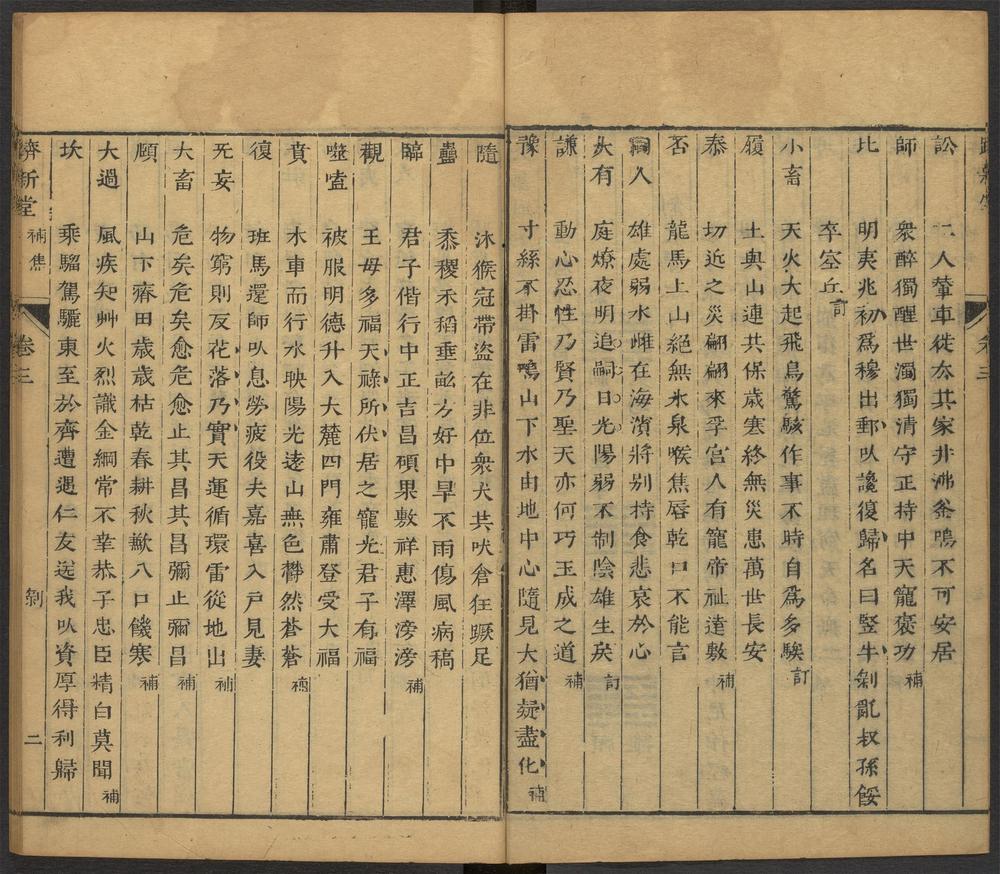 訟　二人輦車徙去其家井沸釜鳴不可安居
師　衆醉獨醒世濁獨清守正持中天寵褒功　補
比　明夷兆初爲穆出郵㕥讒復歸名曰豎牛剝亂叔孫餒
卒室丘　訂
小畜　天火大起飛鳥驚駭作事不時自爲多騃　訂
履　土與山連共保歳寒終無災患萬世長安
泰　切近之災翩翩來孚宮人有寵帝祉達敷　補
否　龍馬上山絕無水泉喉焦唇乾口不能言
同人　雄處弱水雌在海濱將别持食悲哀於心
大有　庭燎夜明追嗣日光陽弱不制陰雄生戾　訂
謙　動心忍性乃賢乃聖天亦何巧玉成之道　補
豫　寸絲不掛雷鳴山下水由地中心隨見大猶疑盡化　補
隨　沐猴冠帶盜在非位衆犬共吠倉狂蹶足
蠱　黍稷禾稻垂畝方好中旱不雨傷風病稿
臨　君子偕行中正吉昌碩果敷祥惠澤滂滂　補
觀　王母多福天祿所伏居之寵光君子有福
噬嗑　被服明德升入大麓四門雍肅登受大福
賁　木車而行水映陽光遠山無色欝然蒼蒼　補
復　班馬還師㕥息勞疲役夫嘉喜入戸見妻
无妄　物窮則反花落乃實天運循環雷從地出　補
大畜　危矣危矣愈危愈止其昌其昌彌止彌昌　補
頤　山下齋田歳歳枯乾春耕秋歉八口饑寒　補
大過　風疾知艸火烈識金綱常不幸恭子忠臣精白莫聞　補
坎　乘騮駕驪東至於齊遭遇仁友送我㕥資厚得利歸
新堂　補焦　卷三　剝　二